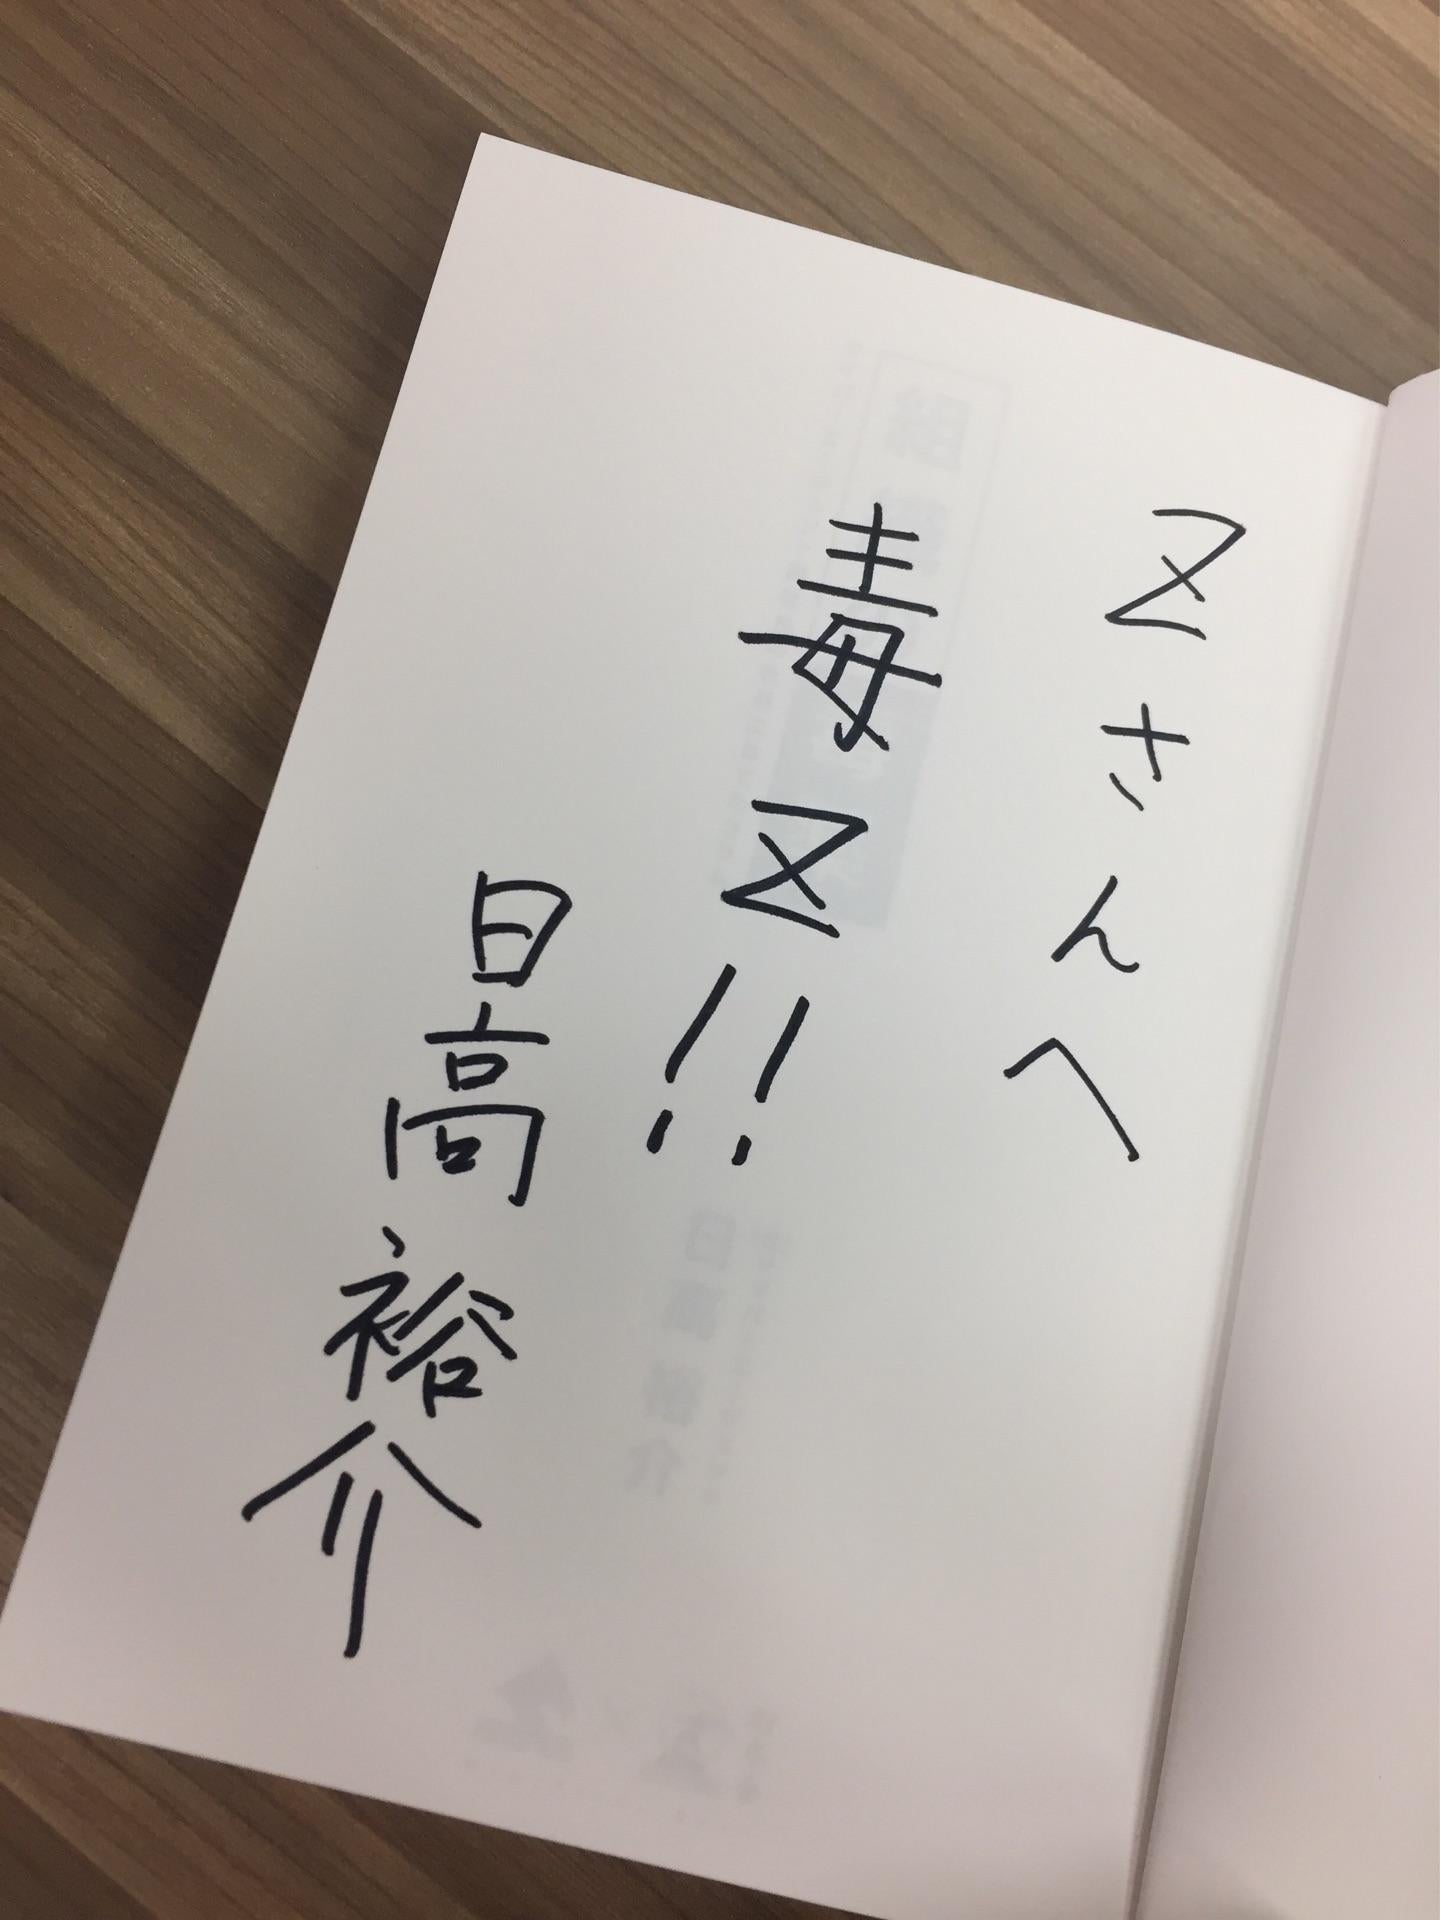 Zさんへ
毒Z!!
日高裕介